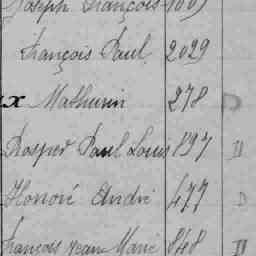 Joseph François 1009
François Paul 2029
x Mathurin 278 D
Prosper Paul Louis 897 D
Honoré André 477 D
François Jean Marie 848 D